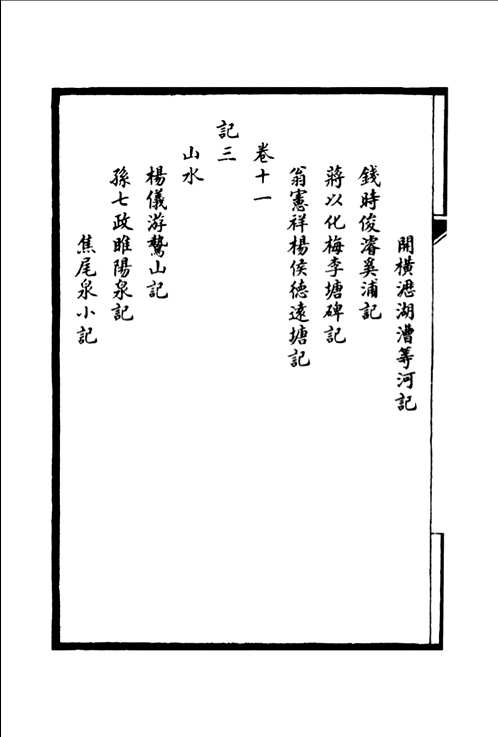 開橫瀝湖漕等河記
錢時俊濬奚浦記
蔣以化梅李塘碑記
翁憲祥楊侯德遠塘記
卷十一
記三
山水
楊儀游鷲山記
孫七政雎陽泉記
焦尾泉小記